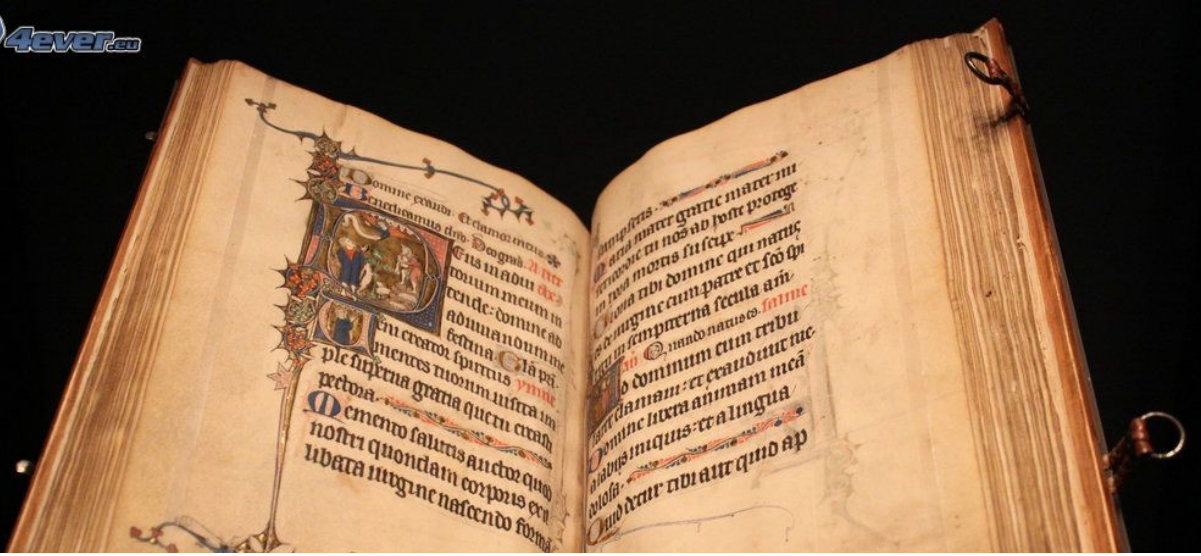 4ever.eu
Domine exaudi · Et clamor meus
Benedicamus dno · Deo gratias · A tter
Eus in adiu
torium meum in
tende : domine ad
adiuuandum me
festina · Gla pa
eni creator spiritus ymne
mentes tuorum uisita im
ple superna gratia que tu creasti
pectora ·
Memento salutis auctor quod
nostri quondam corporis ex in
libata uirgine nascendo formā
sumpseris ·
aria mater gratie mater mi
sericordie tu nos ab hoste protege
in hora mortis suscipe ·
loria tibi domine qui natus
es de uirgine cum patre et scō spi
ritu in sempiterna secula am̄
an̄ Quando natus es · salme
d dominum cum tribu
larer clamaui : et exaudiuit me ·
Domine libera animam meā
a labiis iniquis : et a lingua
dolosa ·
Quid detur tibi aut quid ap